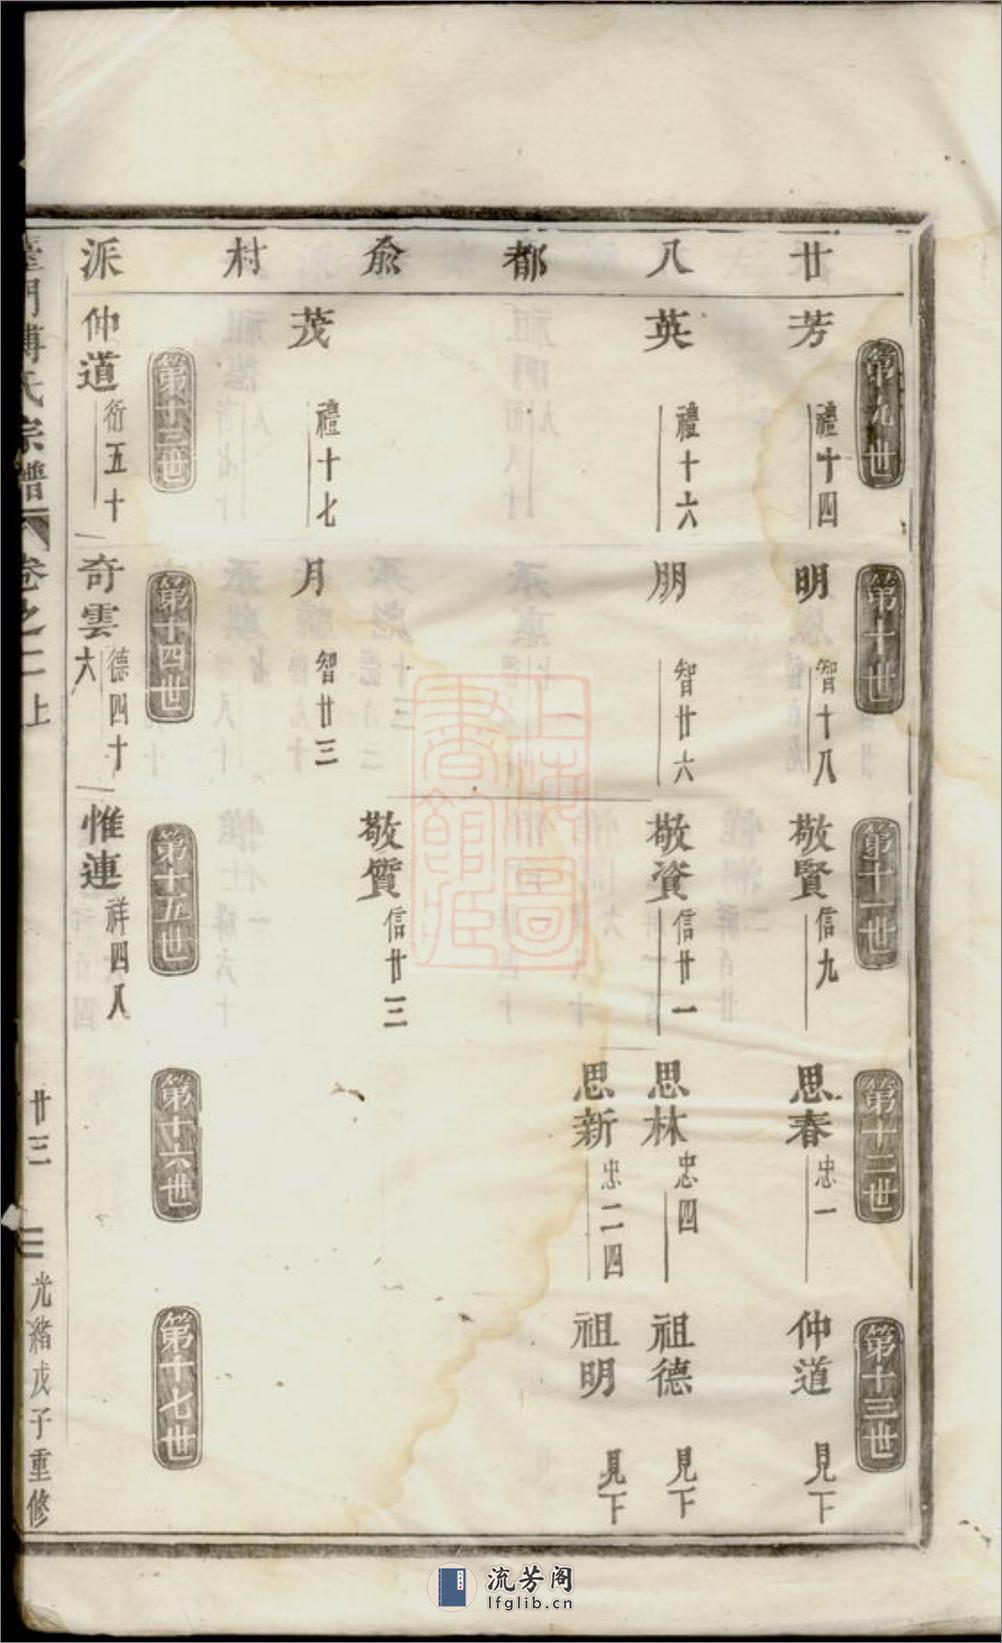 廿八都俞村派
第九世
第十世
第十一世
第十二世
第十三世
芳 禮十四
明 智十八
敬賢 信九
思春 忠一
仲道 見下
英 禮十六
朋 智廿六
敬資 信廿一
思林 忠四
祖德 見下
思新 忠二四
祖明 見下
敬質 信廿三
茂 禮十七
月 智廿三
第十三世
第十四世
第十五世
第十六世
第十七世
仲道 衍五十
奇雲 德四十六
惟連 祥四八
門傅氏宗譜 卷之二上 廿三 光緒戊子重修
上海圖書館藏
流芳阁
lfglib.cn